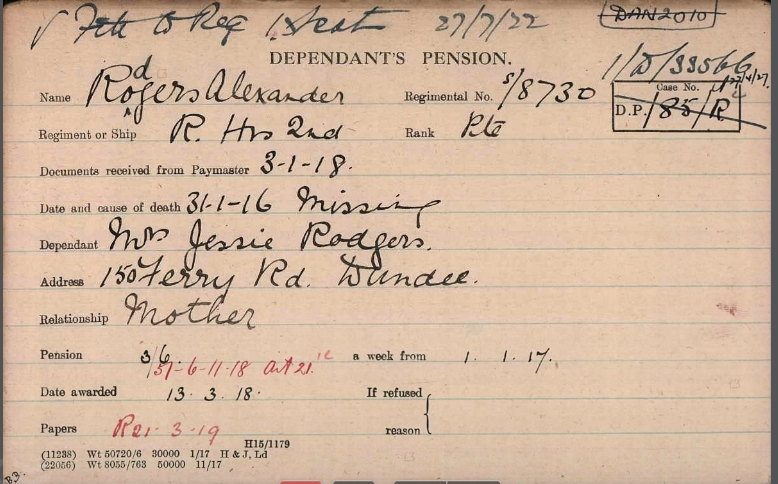 √ Fete to Reg 1 Scot 27/7/22 DAN2010
DEPENDANT'S PENSION.
1/D/33566
Name Rodgers Alexander Regimental No. S/8730
Case No. 27/4/27.
D.P./85/R
Regiment or Ship R. Hrs 2nd Rank Pte
Documents received from Paymaster 3-1-18.
Date and cause of death 31-1-16 Missing
Dependant Mrs Jessie Rodgers.
Address 150 Ferry Rd. Dundee.
Relationship Mother
Pension 3/6. a week from 1. 1. 17.
5/- 6-11-18 Art 21.
Date awarded 13. 3. 18. If refused
reason
Papers R 21-3-19
H15/1179
(11238) Wt 50720/6 30000 1/17 H & J, Ld
(22056) Wt 8055/763 50000 11/17